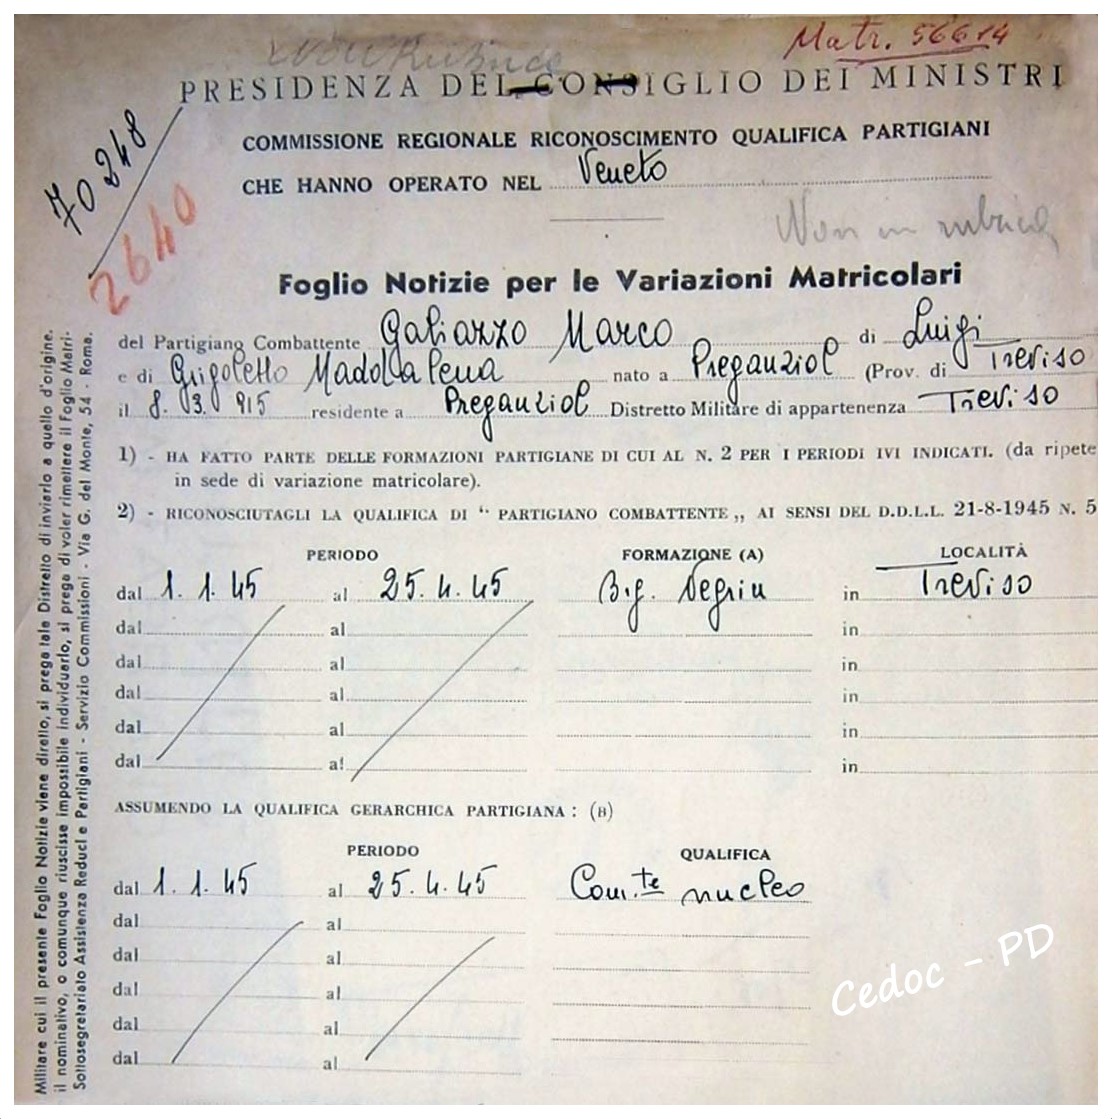 Matr. 56614
PRESIDENZA DEL CONSIGLIO DEI MINISTRI
70248
2640
COMMISSIONE REGIONALE RICONOSCIMENTO QUALIFICA PARTIGIANI
CHE HANNO OPERATO NEL Veneto
Non in rubrica
Foglio Notizie per le Variazioni Matricolari
del Partigiano Combattente Galiazzo Marco di Luigi
e di Grigoletto Maddalena nato a Preganziol (Prov. di Treviso
il 8. 3. 915 residente a Preganziol Distretto Militare di appartenenza Treviso
1) - HA FATTO PARTE DELLE FORMAZIONI PARTIGIANE DI CUI AL N. 2 PER I PERIODI IVI INDICATI. (da ripete
in sede di variazione matricolare).
2) - RICONOSCIUTAGLI LA QUALIFICA DI “ PARTIGIANO COMBATTENTE „ AI SENSI DEL D.D.L.L. 21-8-1945 N. 5
PERIODO FORMAZIONE (A) LOCALITÀ
dal 1. 1. 45 al 25. 4. 45 Big. Negrin in Treviso
dal al in
dal al in
dal al in
dal al in
dal al in
ASSUMENDO LA QUALIFICA GERARCHICA PARTIGIANA : (B)
PERIODO QUALIFICA
dal 1. 1. 45 al 25. 4. 45 Com.te nucleo
dal al
dal al
dal al
dal al
dal al
Cedoc - PD
Militare cui il presente Foglio Notizie viene diretto, si prega tale Distretto di inviarlo a quello d'origine.
il nominativo, o comunque riuscisse impossibile individuarlo, si prega di voler rimettere il Foglio Matri-
Sottosegretariato Assistenza Reduci e Partigiani - Servizio Commissioni - Via G. del Monte, 54 - Roma.